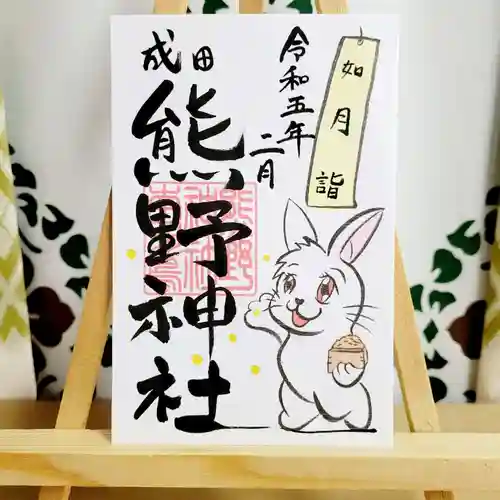 如月詣
令和五年
二月
成田
熊野神社